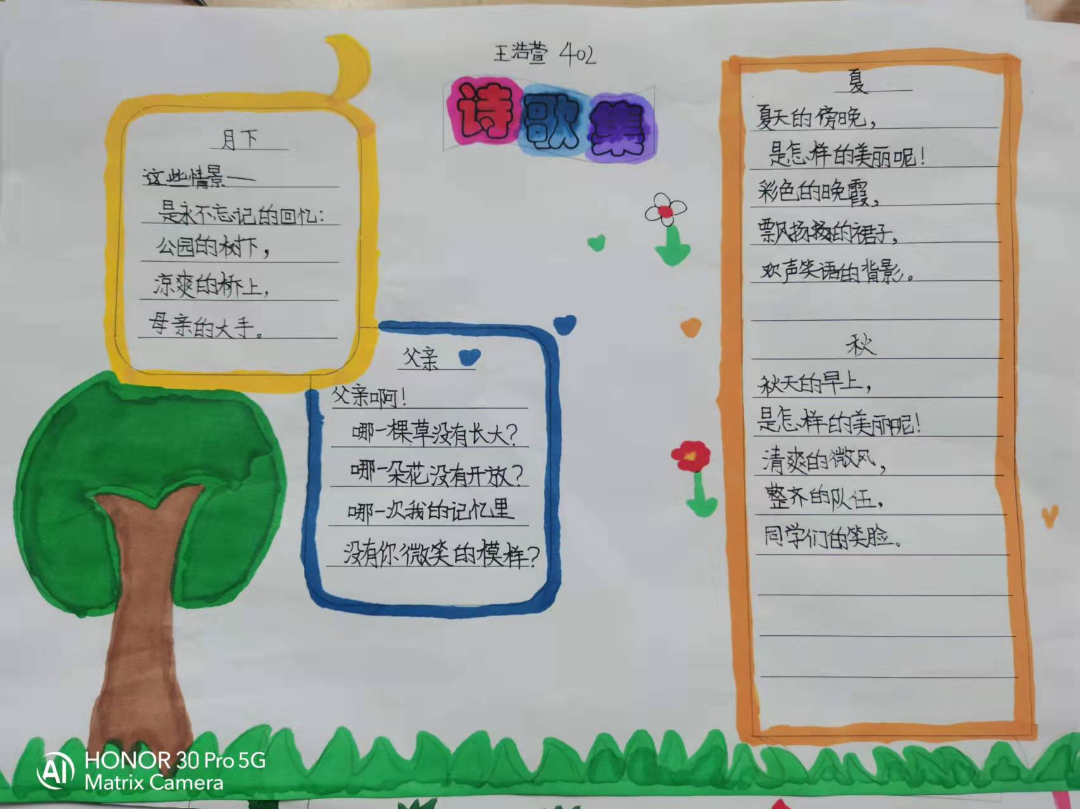 王浩萱 402
诗歌集
月下
这些情景一
是永不忘记的回忆:
公园的树下，
凉爽的桥上，
母亲的大手。
父亲
父亲啊！
哪一棵草没有长大？
哪一朵花没有开放？
哪一次我的记忆里
没有你微笑的模样？
夏
夏天的傍晚，
是怎样的美丽呢！
彩色的晚霞，
飘飘扬扬的裙子，
欢声笑语的背影。
秋
秋天的早上，
是怎样的美丽呢！
清爽的微风，
整齐的队伍，
同学们的笑脸。
HONOR 30 Pro 5G
Matrix Camera